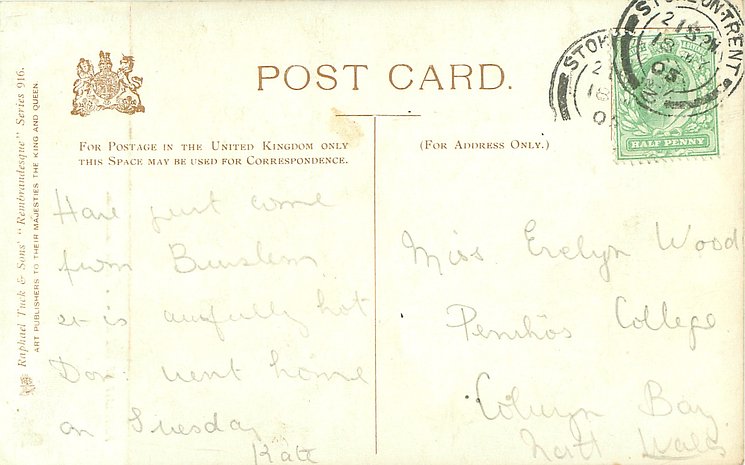 POST CARD.
FOR POSTAGE IN THE UNITED KINGDOM ONLY
THIS SPACE MAY BE USED FOR CORRESPONDENCE.
(FOR ADDRESS ONLY.)
Raphael Tuck & Sons' "Rembrandtesque" Series 916.
ART PUBLISHERS TO THEIR MAJESTIES THE KING AND QUEEN.
STOKE-ON-TRENT
HALF PENNY
Have just come
from Burslem
it is awfully hot
Don. went home
on Tuesday
Kate
Miss Evelyn Wood
Penrhôs College
Colwyn Bay
North Wales